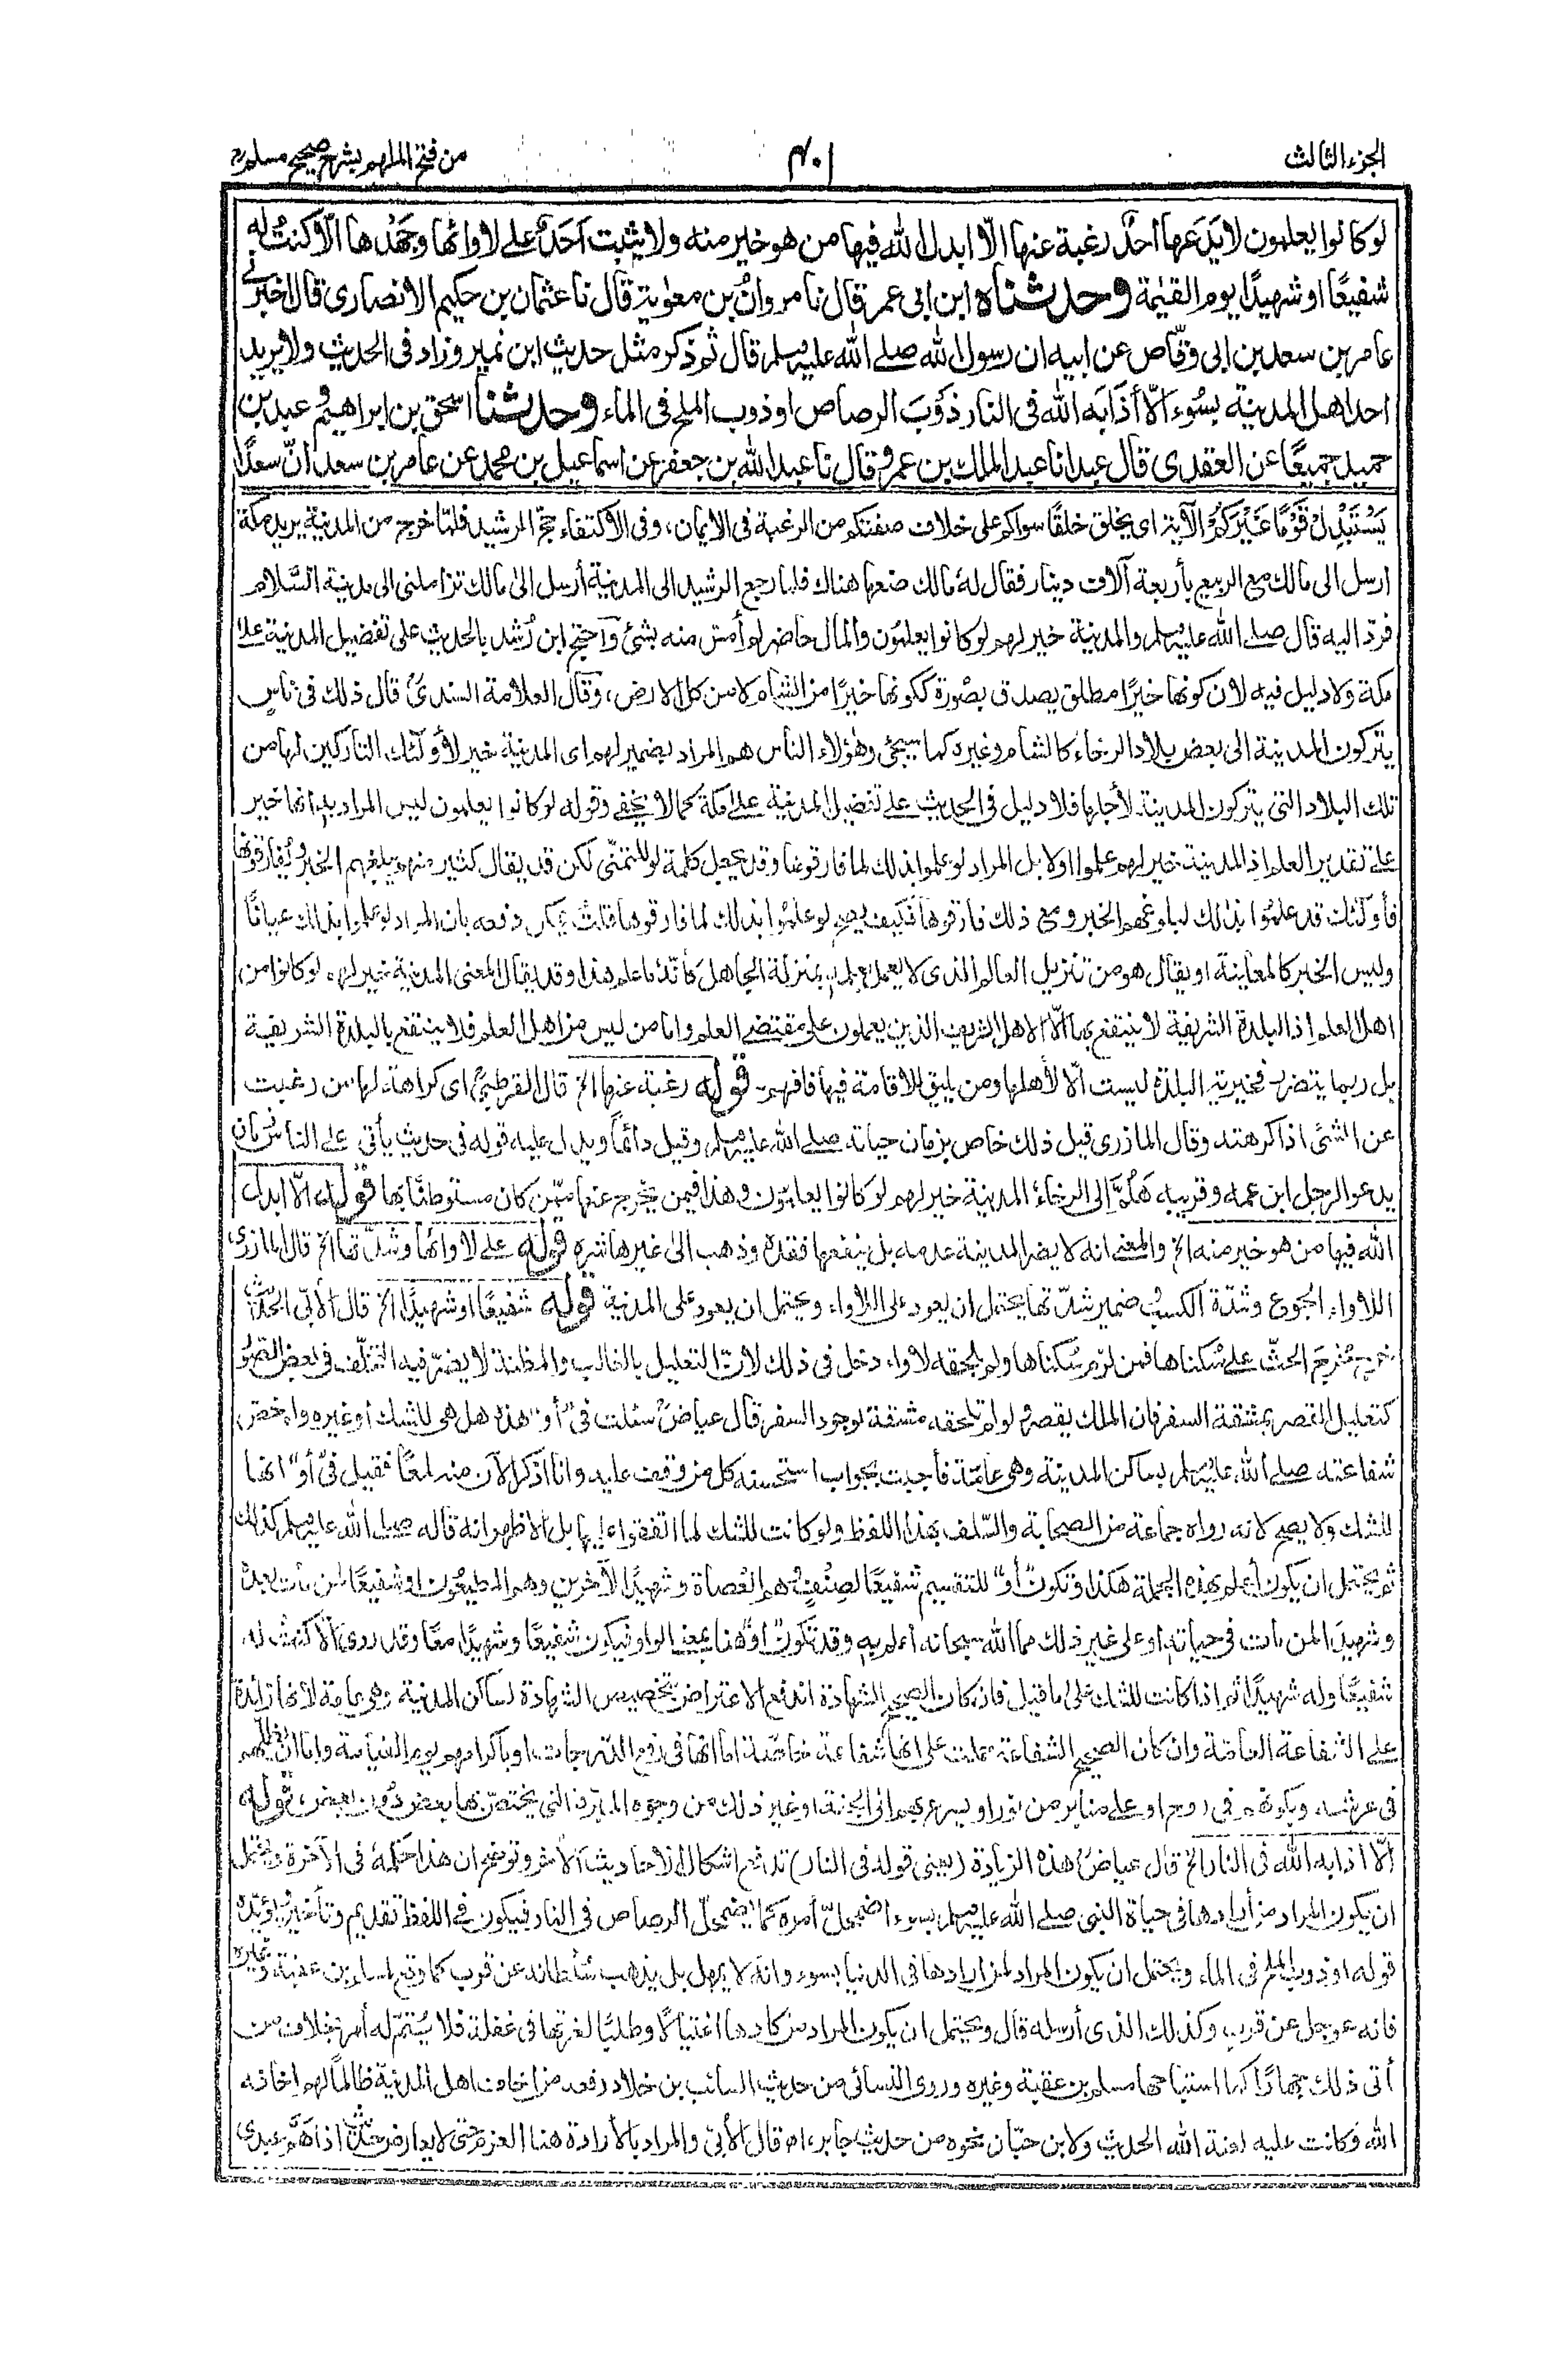 الجزء الثالث
٤٠١
من فتح الملهم بشرح صحيح مسلم
لو كانوا يعلمون لا يدَعها أحدٌ رغبة عنها الّا ابدل الله فيها من هو خير منه ولا يثبت أحَدٌ على لاوائها وجَهْدها الّا كنتُ له
شفيعًا او شهيدًا يوم القيٰمة وحدثناه ابن ابى عمر قال نا مروانُ بن معٰوية قال نا عثمان بن حكيم الانصارى قال اخبرنى
عامر بن سعد بن ابى وقّاص عن ابيه ان رسول الله صلے الله عليه وسلم قال ثم ذكر مثل حديث ابن نمير وزاد فى الحديث ولا يريد
احد اهل المدينة بسُوء الّا أذَابَه الله فى النار ذَوْبَ الرصاص او ذوب الملح فى الماء وحدثنا اسحق بن ابراهيم وعبد بن
حميد جميعًا عن العقدى قال عبد انا عبد الملك بن عمرو قال نا عبد الله بن جعفر عن اسماعيل بن محمد عن عامر بن سعد انّ سعدًا
يَسْتَبْدِلْ قَوْمًا غَيْرَكُمْ الآية اى يخلق خلقًا سواكم على خلاف صفتكم من الرغبة فى الايمان، وفى الاكتفاء حج الرشيد فلمّا خرج من المدينة يريد مكة
ارسل الى مالك مع الربيع بأربعة آلاف دينار فقال لهٗ مالك ضعها هناك فلما رجع الرشيد الى المدينة أرسل الىٰ مالك تزاملنى الى مدينة السَّلام
فردّ اليه قال صلے الله عليه وسلم والمدينة خير لهم لو كانوا يعلمُون والمال حاضر لم أمسّ منه بشئ واحتج ابن رُشد بالحديث على تفضيل المدينة علىٰ
مكة ولا دليل فيه لان كونها خيرًا مطلق يصدق بصُورة ككونها خيرًا من الشام لا من كل الارض، وقال العلامة السندىؒ قال ذلك فى ناسٍ
يتركون المدينة الى بعض بلاد الرخاء كالشام وغيره كما سيجئ وهٰؤلاء الناس هم المراد بضمير لهم اى المدينة خير لأولٰئك التاركين لها من
تلك البلاد التى يتركون المدينة لأجلها فلا دليل فى الحديث على تفضيل المدينة علےٰ مكة كما لا يخفے وقوله لو كانوا يعلمون ليس المراد به انها خير
علے تقدير العلم اذ المدينة خير لهم علموا اولا بل المراد لو علموا بذلك لما فارقوها وقد يجعل كلمة لو للتمنّى لكن قد يقال كثير منهم يبلغهم الخبر ويُفارقونها
فأولٰئك قد علمُوا بذلك لبلوغهم الخبر ومع ذلك فارقوها فكيف يصح لو علمُوا بذلك لما فارقوها قلت يمكن دفعه بان المراد لو علموا بذلك عيانًا
وليس الخبر كالمعاينة او يقال هو من تنزيل العالم الذى لا يعمل بعلمه بمنزلة الجاهل كأنّهٗ ما علم هذا وقد يقال المعنى المدينة خير لهم لو كانوا من
اهل العلم اذ البلدة الشريفة لا ينتفع بها الّا الاهل الشريف الذين يعملون على مقتضے العلم واما من ليس من اهل العلم فلا ينتفع بالبلدة الشريفة
بل ربما يتضرر فخيرية البلدة ليست الّا لأهلها ومن يليق للاقامة فيها فافهم۔ قوله رغبة عنها الخ قال القرطبىؒ اى كراهةً لها من رغبت
عن الشئ اذا كرهته وقال المازرى قيل ذلك خاص بزمان حياته صلے الله عليه وسلم وقيل دائماً ويدل عليه قوله فى حديث يأتى على الناس زمان
يدعو الرجل ابن عمه وقريبه هَلُمَّ إلى الرخاءُ المدينة خير لهم لو كانوا يعلمُون وهذا فيمن يخرج عنها ممّن كان مستوطنًا بها قوله الّا ابدل
الله فيها من هو خير منه الخ والمعنے انه لا يضر المدينة عدمه بل ينفعها فقدهٗ وذهب الىٰ غيرها شره قوله على لاوائها وشدّتها الخ قال المازرى
اللاواء الجوع وشدّة الكسب ضمير شدّتها يحتمل ان يعود على اللاواء ويحتمل ان يعود على المدينة قوله شفيعًا او شهيدًا الخ قال الأبّى الحديث
خرج مخرجَ الحثّ على سُكناها فمن لزم سُكناها ولم تلحقه لأواء دخل فى ذلك لانّ التعليل بالغالب والمظنة لا يضرّ فيه التخلّف فى بعض الصُّوَر
كتعليل القصر بمشقة السفر فان الملك يقصر ولو لم تلحقه مشقة لوجود السفر قال عياضؒ سئلت فى ”أو“ هذه هل هى للشك أو غيره ولم خصّ
شفاعته صلے الله عليه وسلم بساكن المدينة وهى عامّة فأجبت بجواب استحسنه كل من وقف عليه وانا اذكر الآن منه لمعًا فقيل فى ”أو“ انها
للشك ولا يصح لانه رواه جماعة من الصحابة والسّلف بهذا اللفظ ولو كانت للشك لما اتفقوا عليها بل الاظهر انه قاله صلے الله عليه وسلم كذلك
ثم يحتمل ان يكون أعلم بهذه الجملة هكذا وتكون ”أو“ للتقسيم شفيعًا لصِنْفٍ هم العُصاة وشهيدًا لآخرين وهم المطيعُون او شفيعًا لمن مات بعدهٗ
وشهيدًا لمن مات فى حياته او على غير ذلك مما الله سبحانه اعلم به وقد تكون ”او“ هنا بمعنے الواو فيكون شفيعًا وشهيدًا معًا وقد روى الّا كنتُ له
شفيعًا وله شهيدًا ثم اذا كانت للشك علىٰ ما قيل فان كان الصحيح الشهادة اندفع الاعتراض بتخصيص الشهادة لساكن المدينة وهى عامة لأنها زائدة
على الشفاعة العامّة وان كان الصحيح الشفاعة حملت على انها شفاعة خاصّة اما انها فى رفع الدّرجات او باكرامهم يوم القيامة واما ان يظلّهم
فى عرشه، وبكونهم فى روح او على منابر من نور او يسرع بهم الى الجنة او غير ذلك من وجوه المبرّة التى يختصّ بها بعض دُون بعض، قوله
الّا اذابه الله فى النار الخ قال عياضؒ هذه الزيادة (يعنى قوله فى النار) تدفع اشكال الاحاديث الأخر وتوضح ان هذا حكمهٗ فى الآخرة ويحتمل
ان يكون المراد من أرادها فى حياة النبى صلے الله عليه وسلم بسوء اضمحلّ أمره كما يضمحلّ الرصاص فى النار فيكون فى اللفظ تقديم وتأخير يُؤيّده
قوله او ذوب الملح فى الماء ويحتمل ان يكون المراد لمن ارادها فى الدنيا بسوء وانهٗ لا يمهل بل يذهب سلطانه عن قرب كما وقع لمسلم بن عقبة وغيره
فانه عوجل عن قرب وكذلك الذى أرسله قال ويحتمل ان يكون المراد من كادها اغتيالًا وطلبًا لغرتها فى غفلة فلا يُتمّ له أمر بخلاف من
أتى ذلك جهارًا كما استباحها مسلم بن عقبة وغيره وروى النسائى من حديث السائب بن خلاد رفعه من اخاف اهل المدينة ظالمًا لهم اخافه
الله وكانت عليه لعنة الله الحديث ولابن حبّان نحوه من حديث جابر، اھ قال الأبّى والمراد بالارادة هنا العزم حتى لا يعارض حديث اذا هَمَّ عبدى